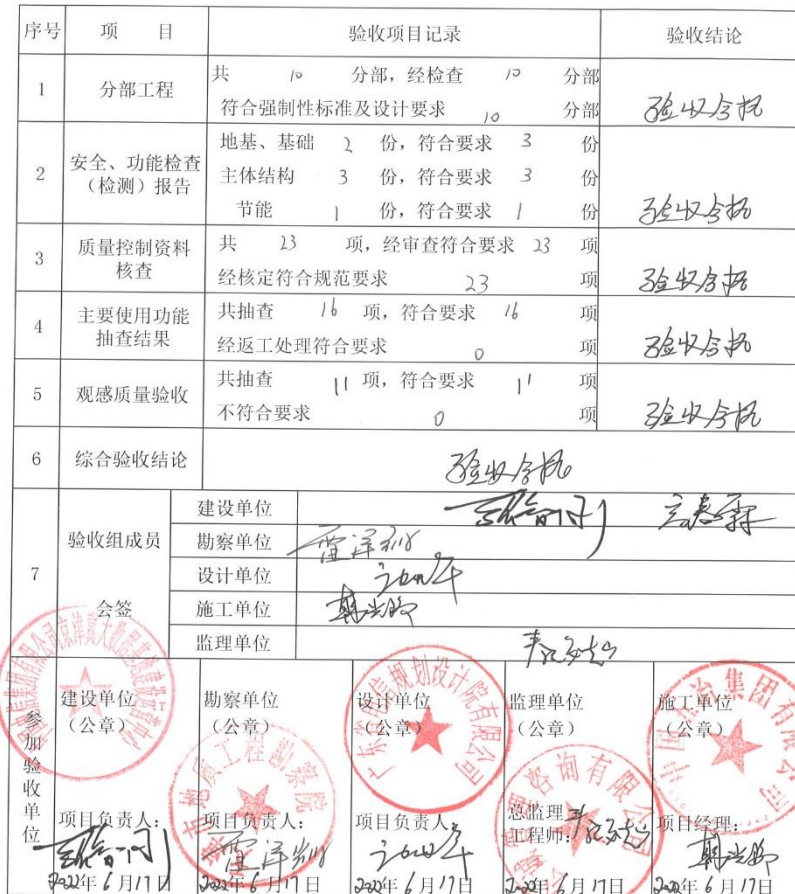 序号 项 目 验收项目记录 验收结论
1 分部工程 共 10 分部，经检查 10 分部
符合强制性标准及设计要求 10 分部 验收合格
2 安全、功能检查（检测）报告 地基、基础 2 份，符合要求 3 份
主体结构 3 份，符合要求 3 份
节能 1 份，符合要求 1 份 验收合格
3 质量控制资料核查 共 23 项，经审查符合要求 23 项
经核定符合规范要求 23 项 验收合格
4 主要使用功能抽查结果 共抽查 16 项，符合要求 16 项
经返工处理符合要求 0 项 验收合格
5 观感质量验收 共抽查 11 项，符合要求 11 项
不符合要求 0 项 验收合格
6 综合验收结论 验收合格
7 验收组成员会签 建设单位
勘察单位
设计单位
施工单位
监理单位
参加验收单位
建设单位（公章） 勘察单位（公章） 设计单位（公章） 监理单位（公章） 施工单位（公章）
项目负责人： 项目负责人： 项目负责人： 总监理工程师： 项目经理：
2022年6月17日 2022年6月17日 2022年6月17日 2022年6月17日 2022年6月17日